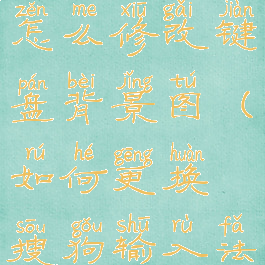 zěn me xiū gǎi jiàn
怎么修改键
pán bèi jǐng tú
盘背景图（
rú hé gēng huàn
如何更换
sōu gǒu shū rù fǎ
搜狗输入法